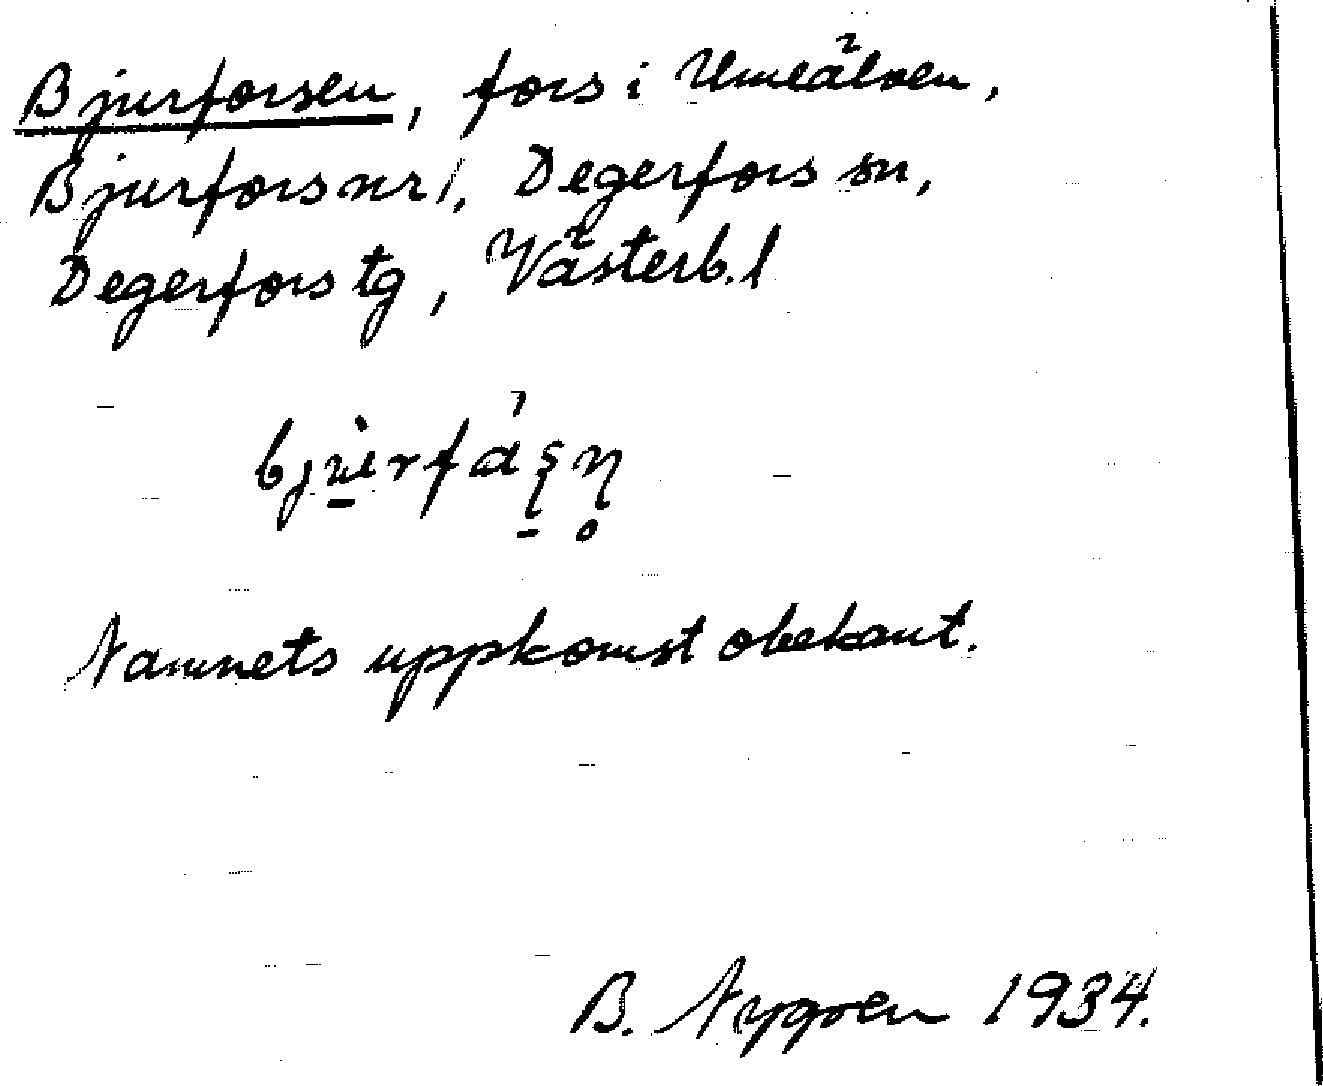 Bjurforsen, fors i Umeälven,
Bjurfors nr 1, Degerfors sn,
Degerfors tg, Västerb. l
Namnets uppkomst obekant.
B. Nygren 1934.